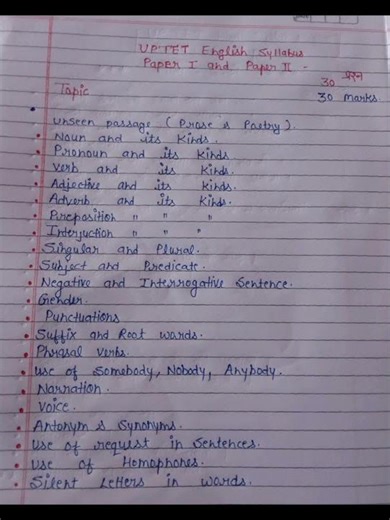 UPTET English Syllabus
Paper I and Paper II -
30 प्रश्न
Topic 30 marks.
• unseen passage ( Prose & Poetry ).
• Noun and its Kinds.
• Pronoun and its Kinds
• Verb and its Kinds.
• Adjective and its Kinds.
• Adverb and its Kinds.
• Preposition " " "
• Interjuction " " "
• Singular and Plural.
• Subject and Predicate.
• Negative and Interrogative Sentence.
• Gender.
Punctuations
• Suffix and Root words.
• Phrasal verbs.
• use of Somebody, Nobody, Anybody.
• Narration.
• Voice.
• Antonym & Synonyms.
• use of request in Sentences.
• use of Homophones.
• Silent Letters in words.